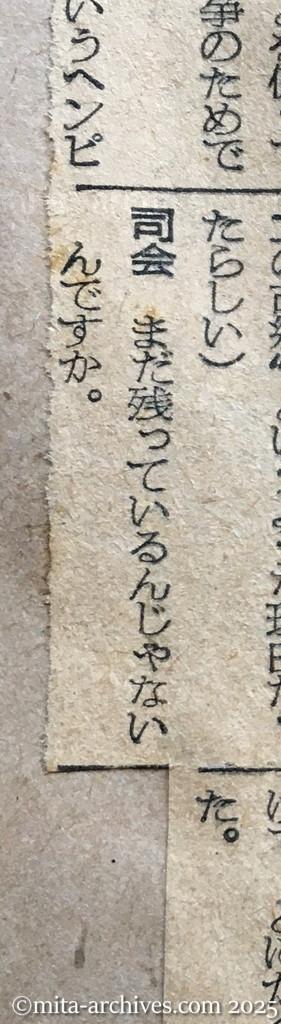 争のためで
いうヘンピ
たらしい）
司会　まだ残っているんじゃない
んですか。
た。
©mita-archives.com 2025